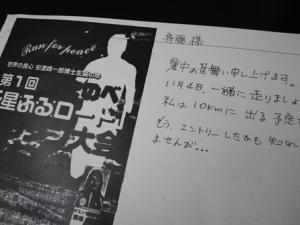 Run for peace
世界の良心 安達峰一郎博士生誕の地
第1回
斉藤 様
暑中お見舞い申し上げます。
11月4日、一緒に走りましょ
私は10kmに出る予定で
もう、エントリーしたかも知れ
ませんが…